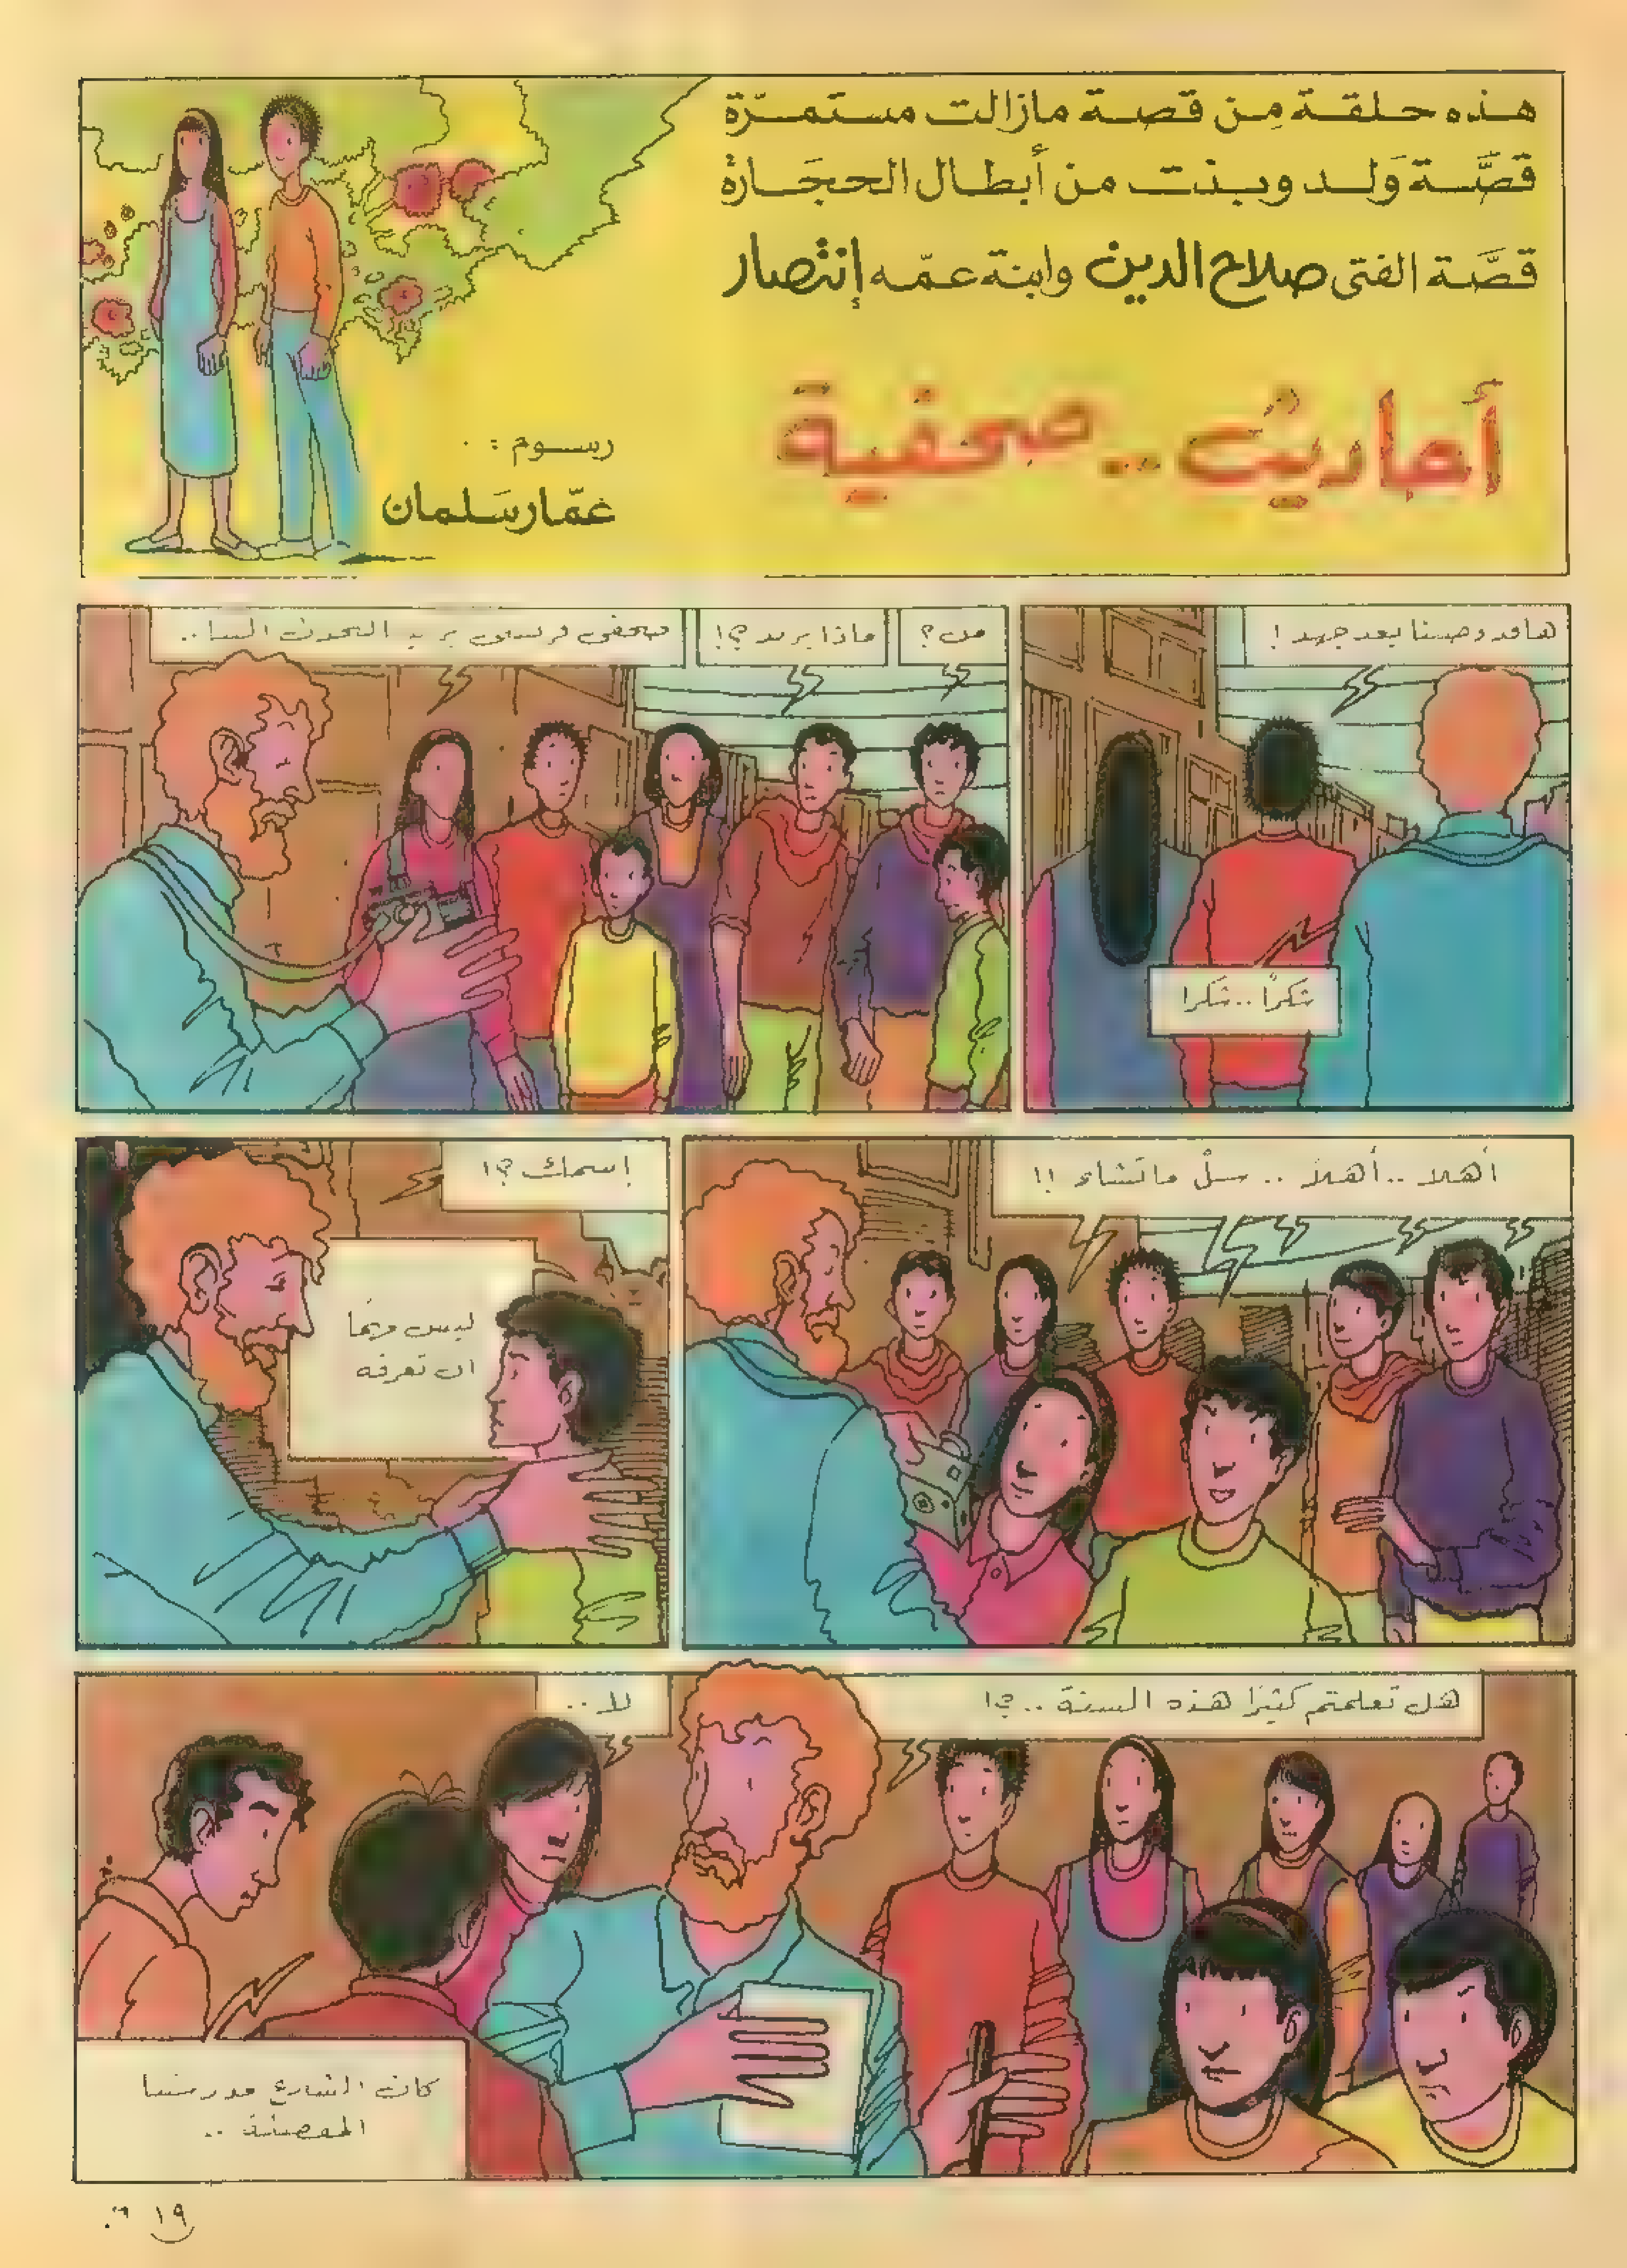 هذه حلقة مِن قصة مازالت مستمرّة
قصَّة وَلد وبنت من أبطال الحجَارة
قصَّة الفتى صلاح الدين وابنة عمّه إنتصار
أحاديثُ .. صحفية
رسوم :
عمّار سَلمان
ها قد وصلنا بعد جهد !
شكرًا .. شكرا
من ؟
ماذا يريد ؟!
صحفي فرنسي يريد التحدث الينا ..
أهلا .. أهلاً .. سلْ ما تشاء !!
إسمك ؟!
ليس مهمًا
ان تعرفه
هل تعلمتم كثيرًا هذه السنة .. ؟!
لا ..
كان الشارع مدرستنا
المفضلة ..
١٩